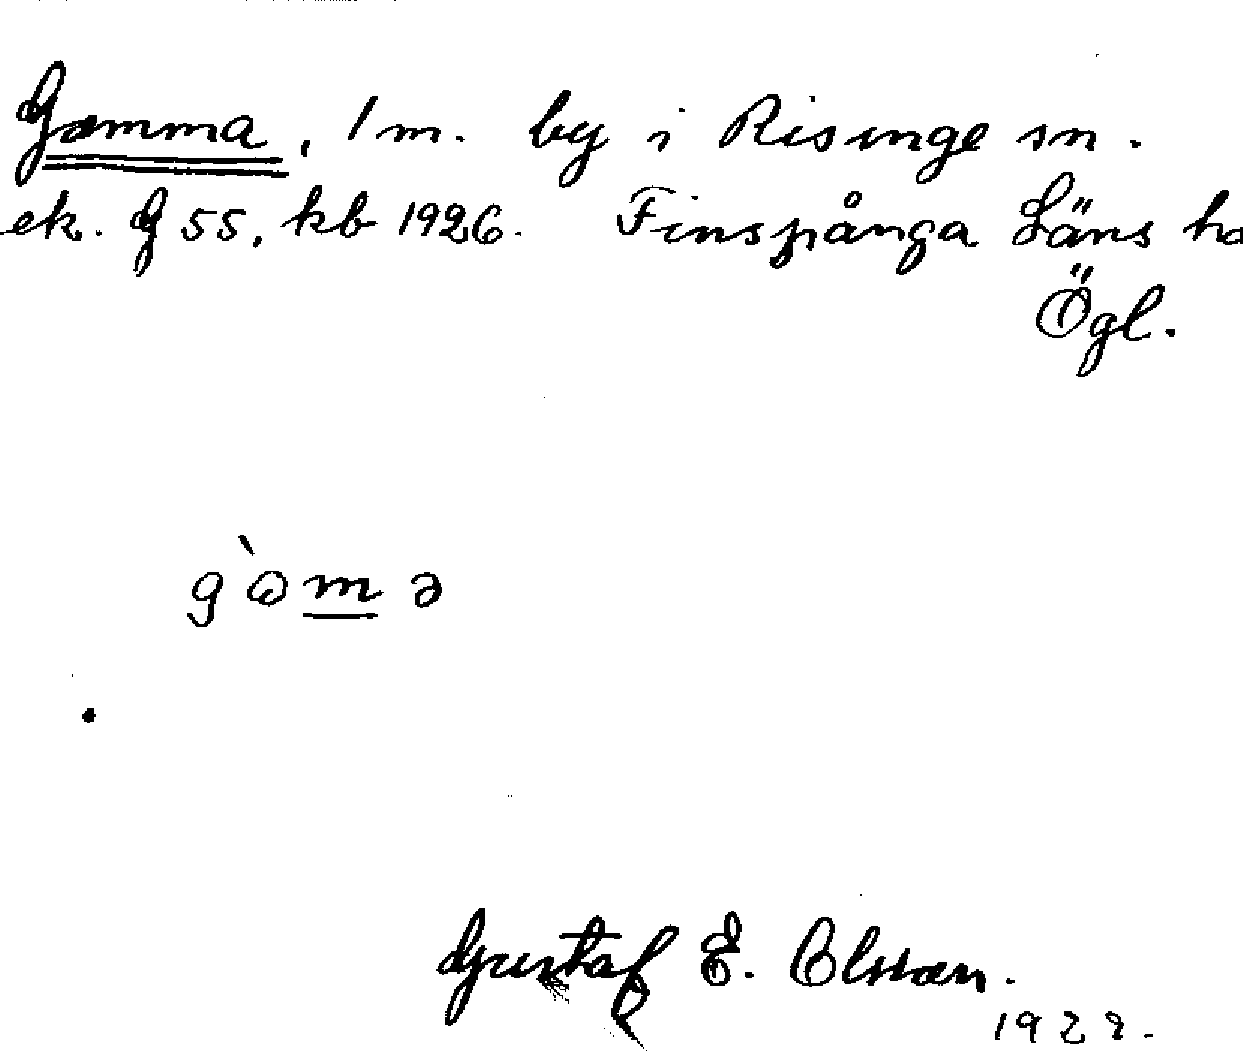 Gomma, 1 m. by i Risinge sn.
ek. G 55, kb 1926. Finspånga Läns ha
Ögl.
g`ɷmə
Gustaf E. Olsson.
1922.